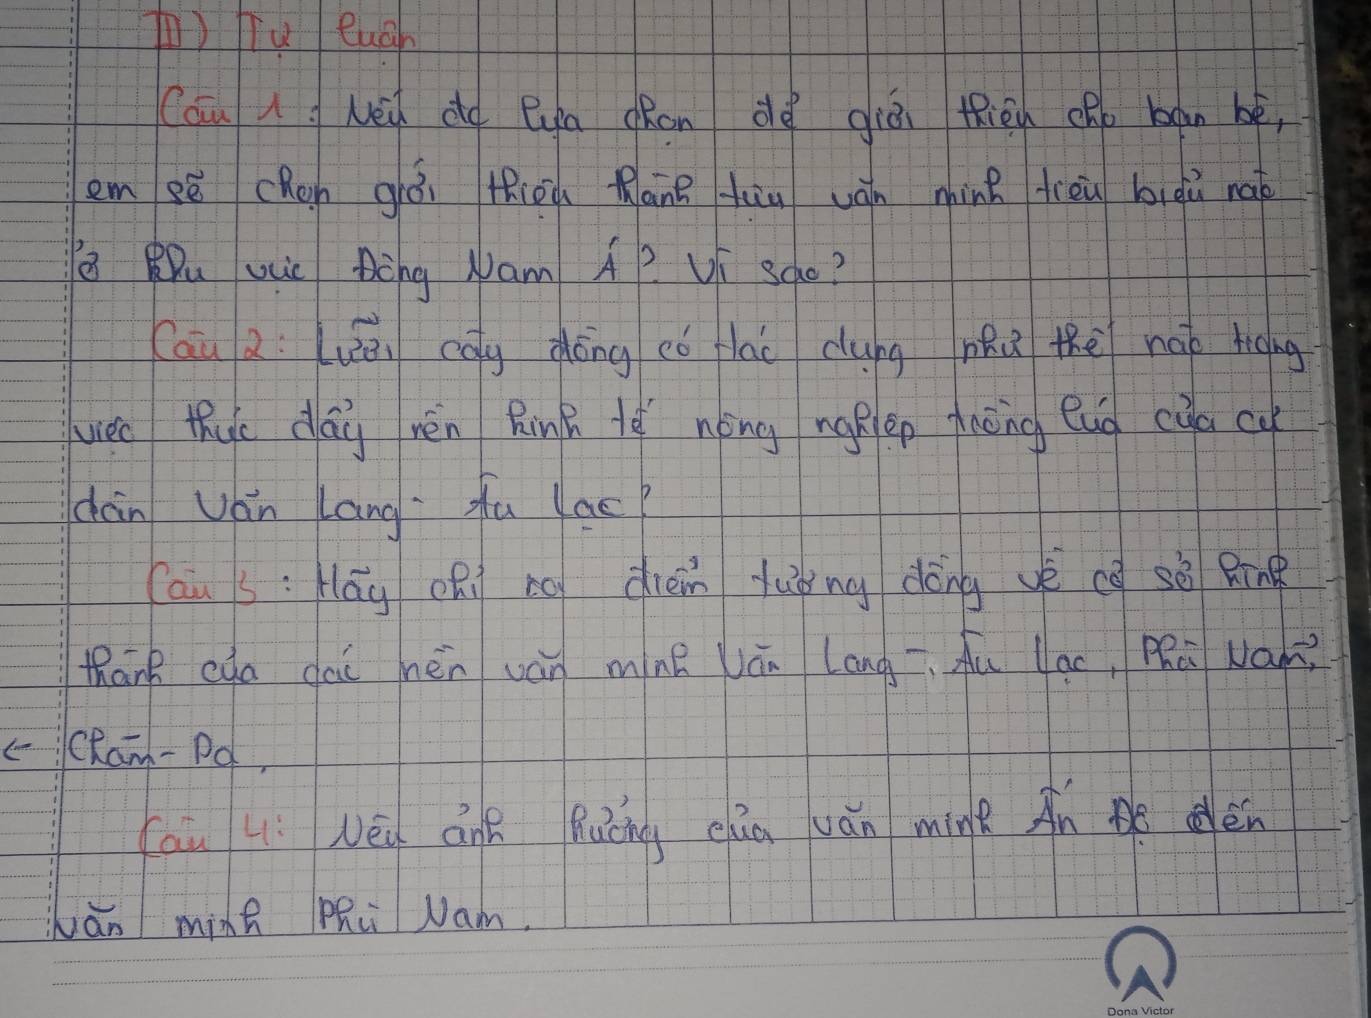 II) Tự luận
Câu 1: Nếu đc lựa chọn để giới thiệu cho bạn bè,
em sẽ chọn giới thiệu thành tựu văn minh tiêu biểu nào
ở khu vực Đông Nam Á? Vì sao?
Câu 2: Lưỡi cày đồng có tác dụng như thế nào trong
việc thúc đẩy nền kinh tế nông nghiệp trồng lúa của cư
dân Văn Lang - Âu Lạc?
Câu 3: Hãy chỉ ra điểm tương đồng về cơ sở hình
thành của các nền văn minh Văn Lang - Âu Lạc, Phù Nam,
← Chăm-Pa.
Câu 4: Nêu ảnh hưởng của văn minh Ấn Độ đến
văn minh Phù Nam.
Dona Victor